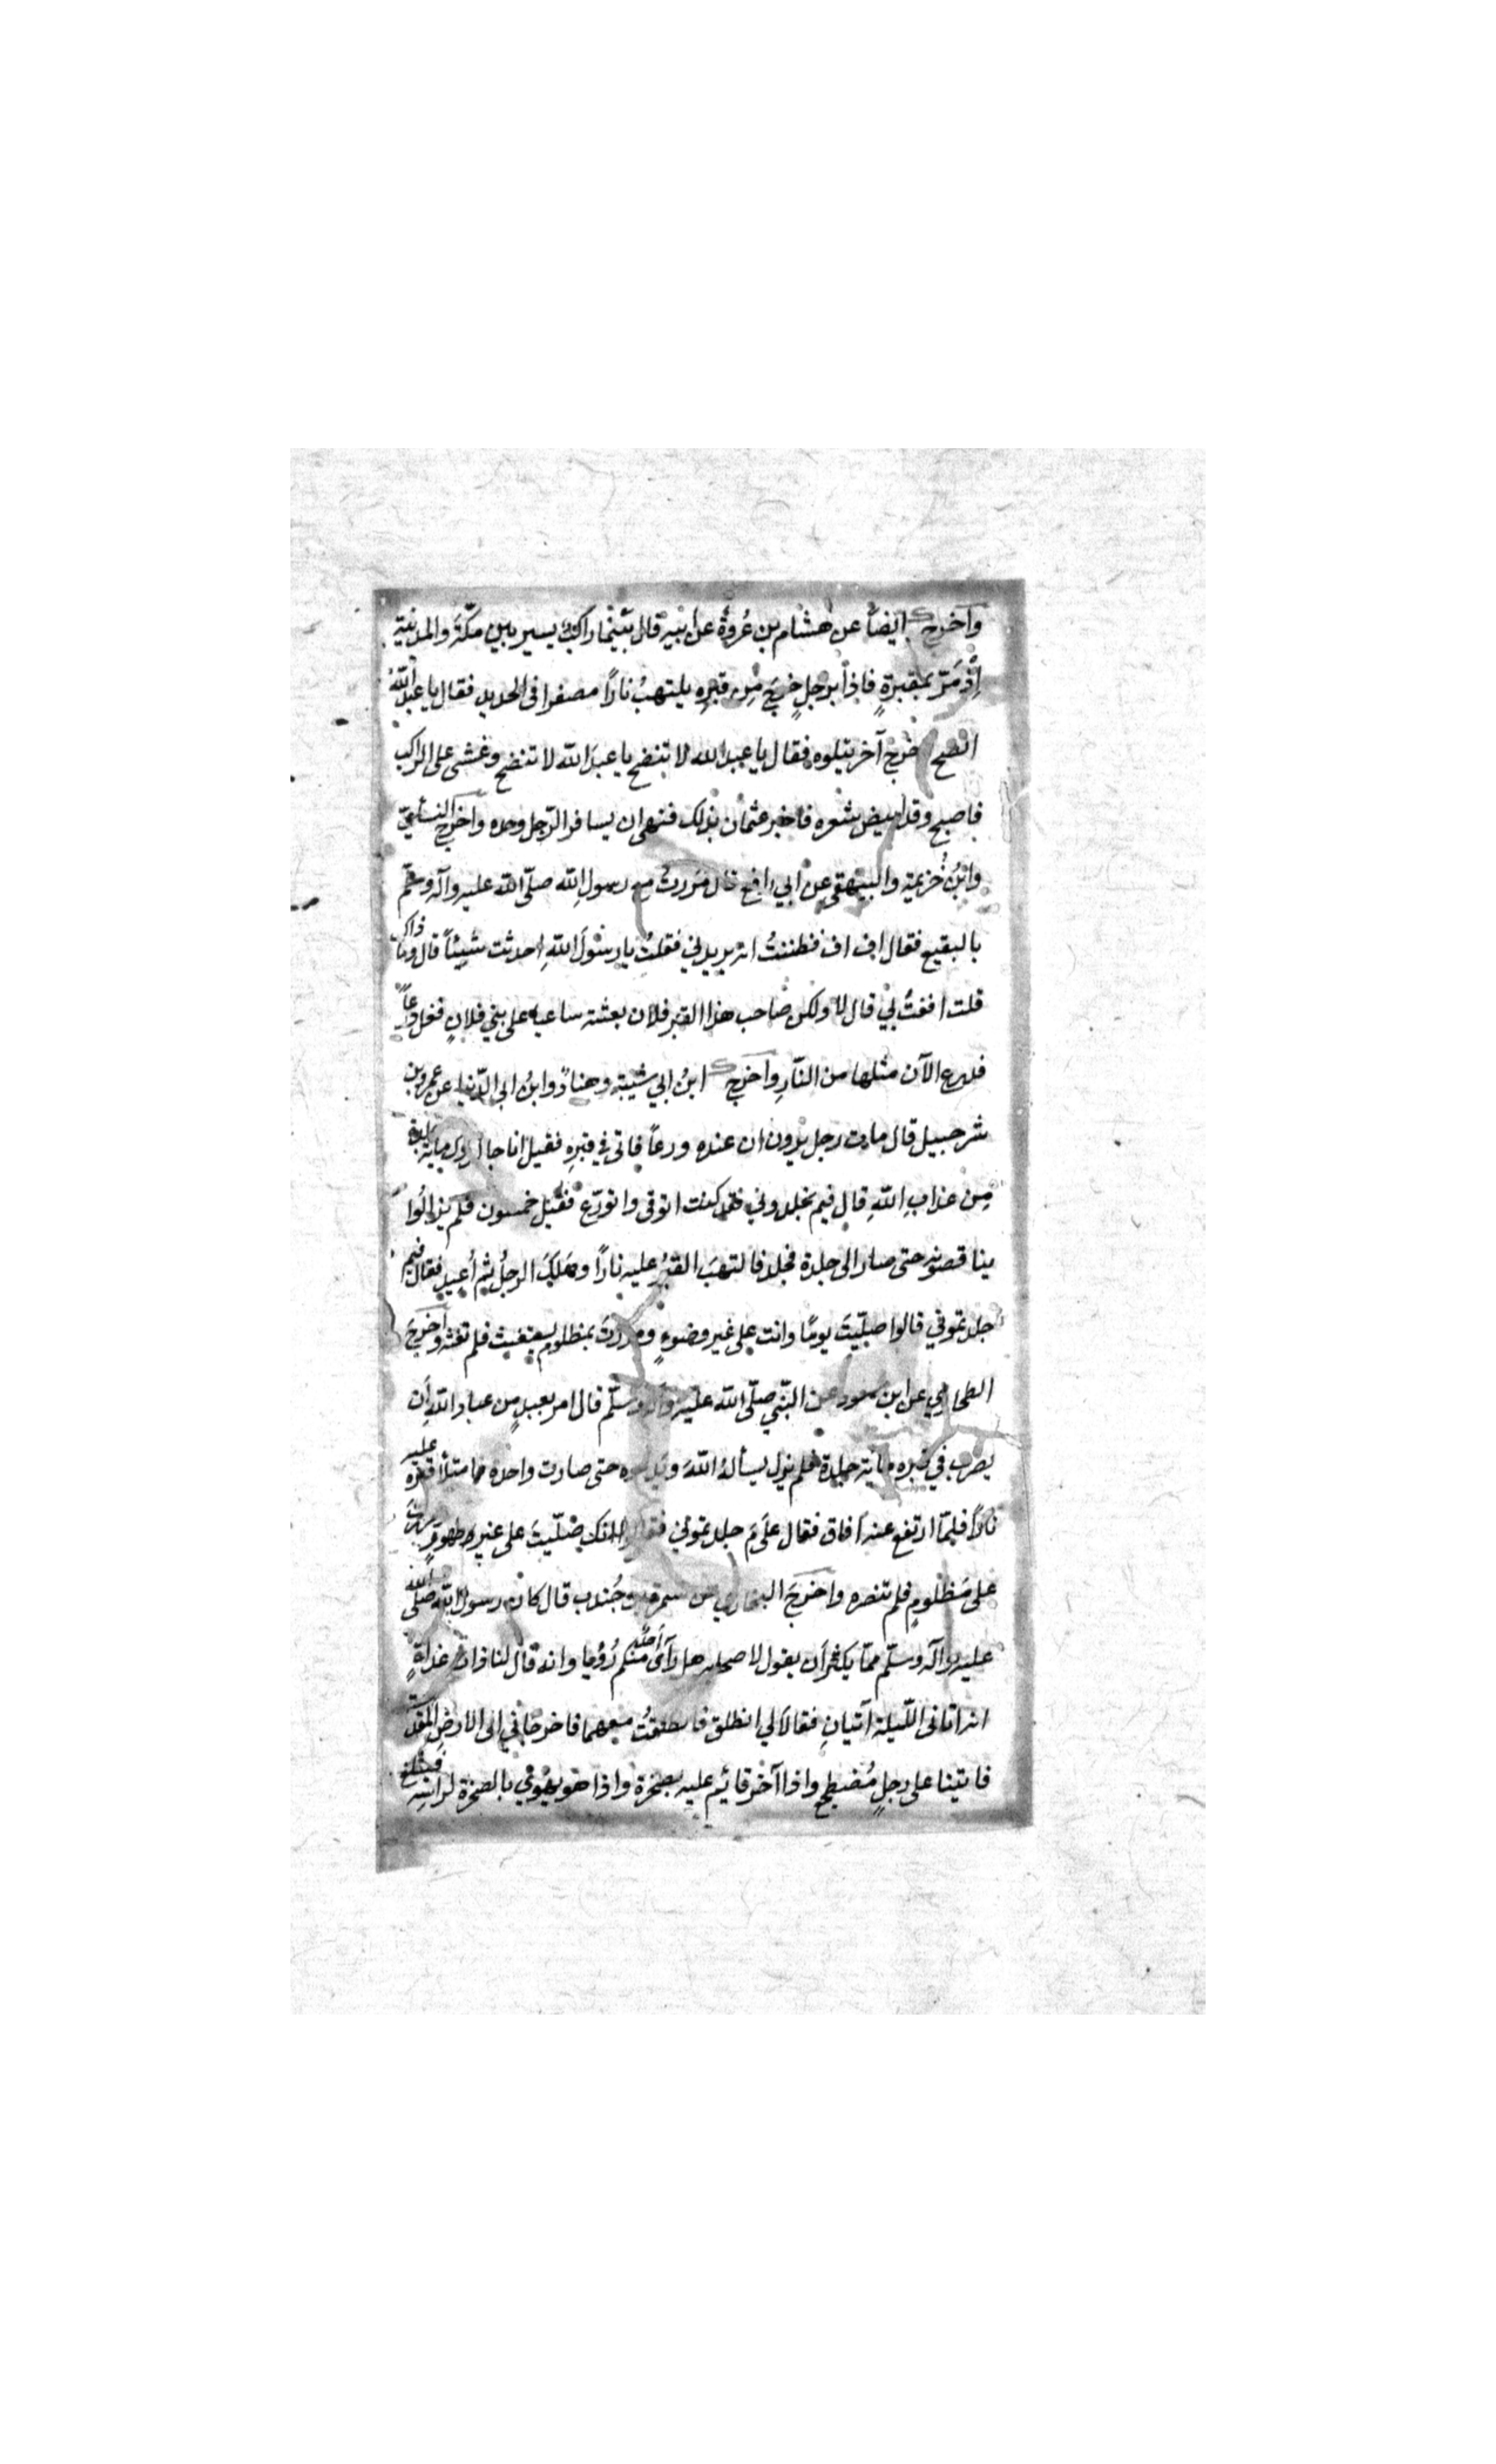 وأخرج ايضاً عن هشام بن عُروة عن ابيه قال بَيْنَما راكبٌ يسير بين مكّة والمدينة
إذْ مَرّ بمقبرةٍ فاذا برجلٍ خرجَ مِن قبرِه يلتهبُ ناراً مصفدا فى الحديد فقال يا عبد اللهُ
انضح خرج آخر يتلوه فقال يا عبد الله لا تنضح يا عبدَ الله لا تنضح وغشى على الراكب
فاصبح وقد ابيض شعره فاخبر عثمان بذلك فنهى ان يسافر الرّجل وحده واخرج النسأيّ
وابنُ خُزيمة والبيهقى عن ابي رافع قال مَررتُ مع رسول الله صلّى الله عليه وآله وسلّم
بالبقيع فقال اف اف فظننتُ انه يريدني فقلتُ يا رسُولَ اللهِ احدثت شيئاً قال وما ذاك
قلت اففتُ لي قال لا ولكن صاحب هذا القبر فلان بعثته ساعيا على بني فلانٍ فغل درعاً
فدرع الآن مثلها من النّارِ وأخرج ابنُ ابي شيبة وهنادٌ وابنُ ابى الدّنيا عن عمرو بن
شرحبيل قال مات رجل يرون ان عنده ورعاً فاتى في قبرِه فقيل انا جالدوك مايةَ جلدةٍ
مِن عذابِ اللهِ قال فيم تجلدوني فقد كنت اتوقى واتورّع فقيل خمسون فلم يزالُوا
يناقصونه حتى صار الى جلدة فجلد فالتهبَ القبرُ عليه ناراً وهَلكَ الرجلُ ثم أُعيد فقال فيم
جلدتموني قالوا صلّيتَ يومًا وانت على غير وضوءٍ ومررتَ بمظلوم يستغيث فلم تغثه وأخرجَ
الطحاوي عن ابن مسعود عن النّبي صلّى الله عليه وآله وسلّم قال امر بعبدٍ من عباد اللهِ أن
يضرب في قبره ماية جلدة فلم يزل يسألهُ اللهَ ويدعوه حتى صارت واحدة فامتلأ قبره عليه
ناراً فلمّا ارتفع عنه أفاق فقال علَى مَ جلدتموني فقالوا انك صَلّيتَ على غير طهورٍ ومررتَ
على مَظلومٍ فلم تنصره واخرجَ البخاري عن سمرة بن جُندب قال كان رسول الله صلّى الله
عليه وآله وسلّم ممّا يكثر أن يقول لاصحابه هل رَآى أحدٌ منكم رُؤيا وانه قال لنا ذات غداةٍ
انه اتانى اللّيلة آتيانِ فقالا لي انطلق فانطلقتُ معهما فاخرجاني الى الارضِ المقدّسة
فاتينا على رجلٍ مُضطجع واذا آخر قائم عليه بصخرة واذا هو يهوي بالصخرة لرأسِه فيثلغ